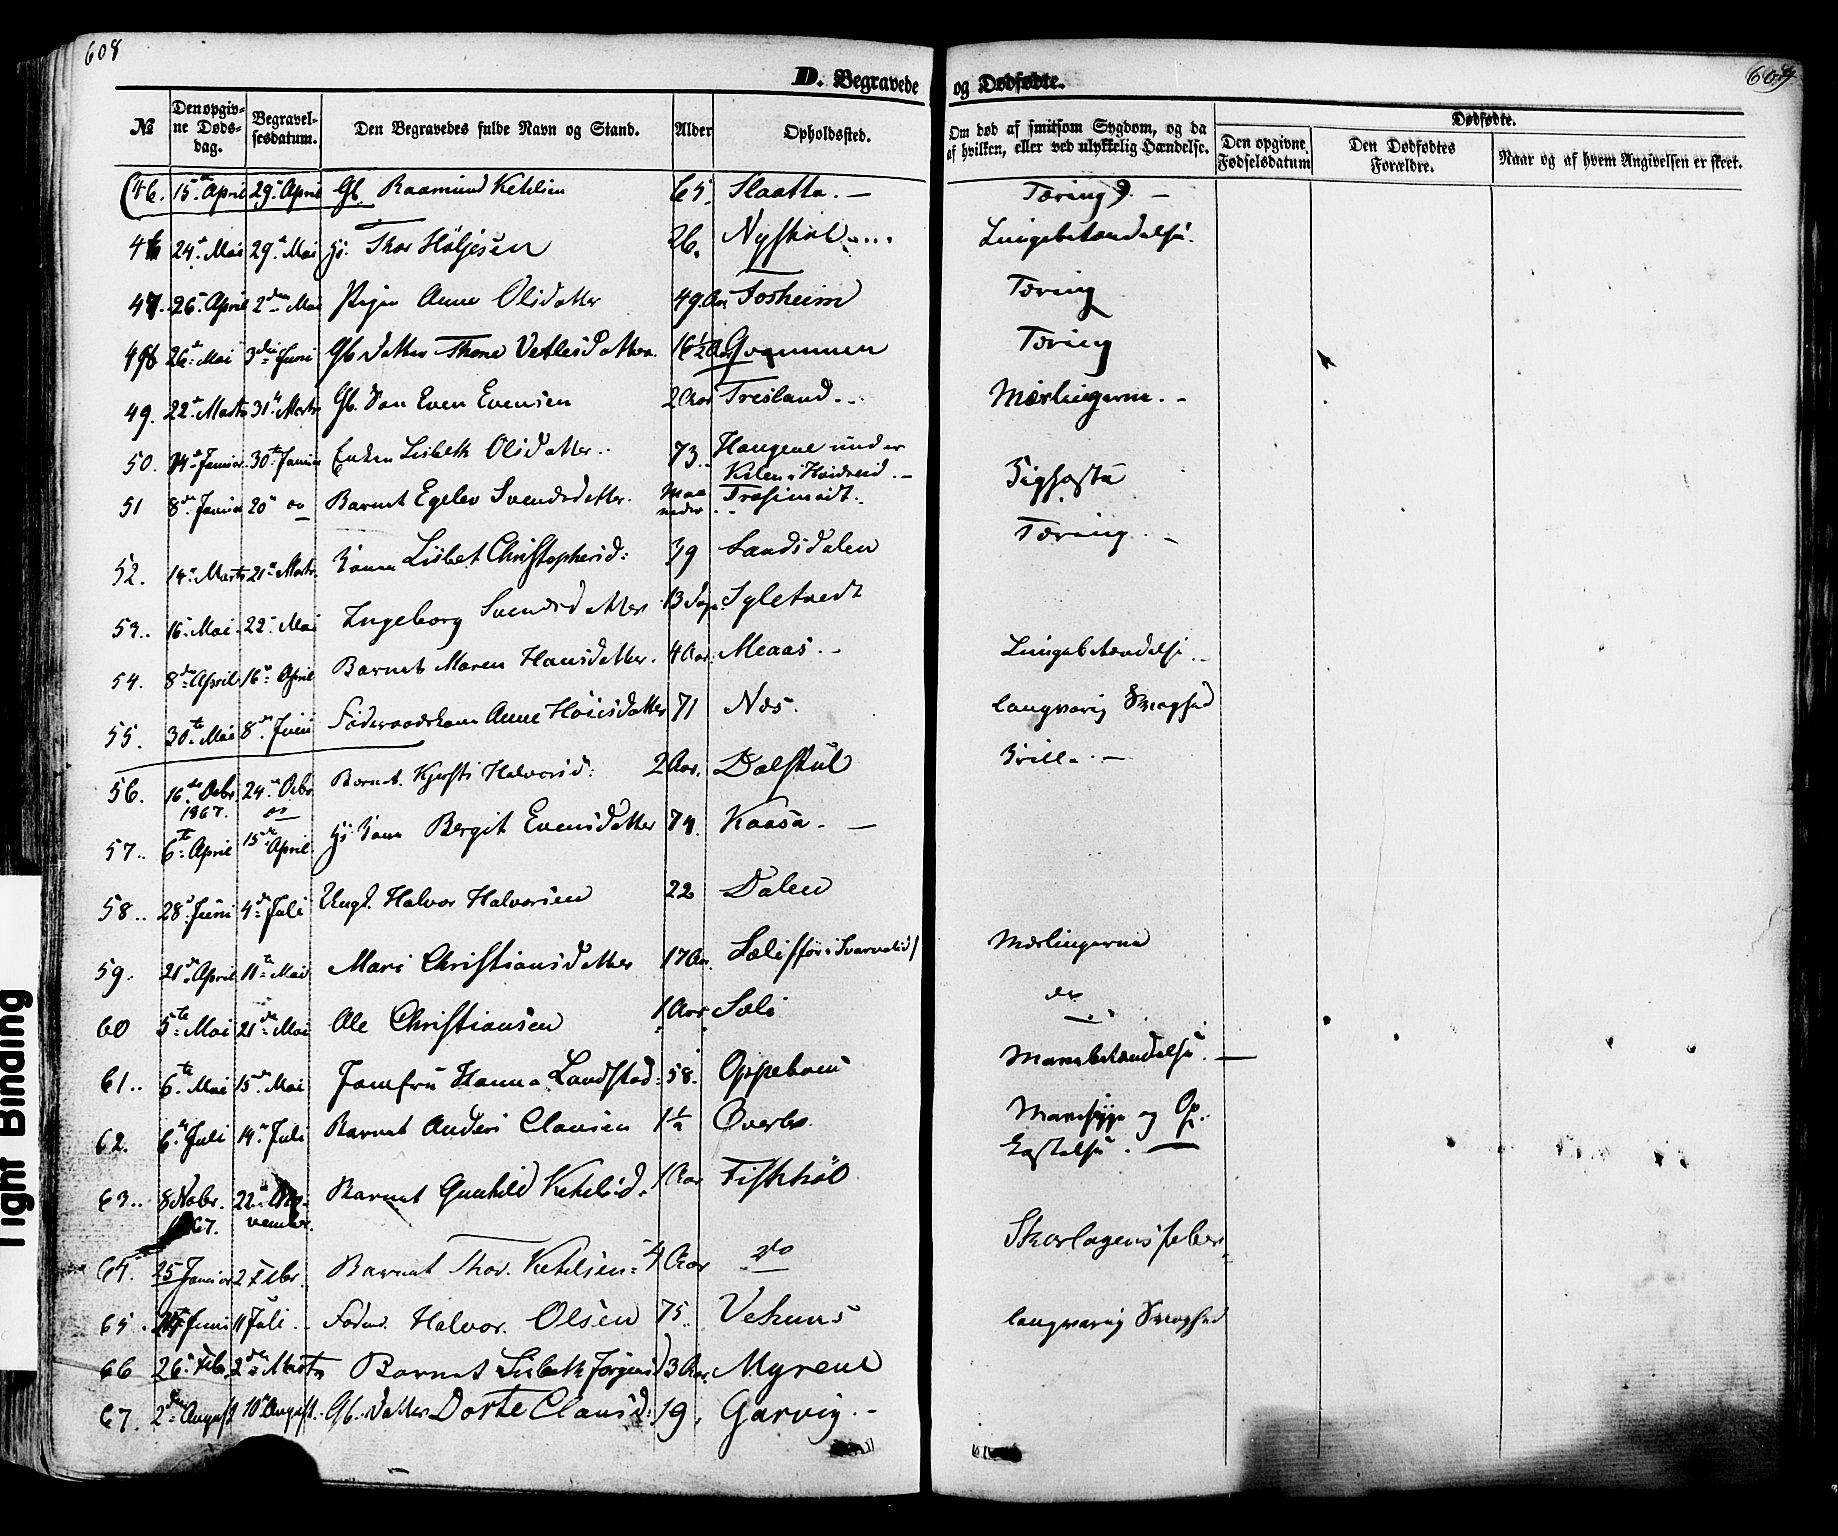 608
D. Begravede og Dødfødte.
609
№ Den opgivne Dødsdag. Begravelsesdatum. Den Begravedes fulde Navn og Stand. Alder Opholdssted. Om død af smitsom Sygdom, og da af hvilken, eller ved ulykkelig Hændelse. Dødfødte.
Den opgivne Fødselsdatum Den Dødfødtes Forældre. Naar og af hvem Angivelsen er skeet.
(46. 15 April 29 April Gb. Raamund Ketilsen 65. Slaatta. — Tæring. —
46 24 Mai 29 Mai Thor Høljesen 26. Nystul Lungebetændelse.
47. 26 April 2den Mai Pigen Anne Olsdatter 49 Aar Fosheim Tæring
48 26 Mai 3die Juni Gb. datter Thone Vetlesdatter. 16½ Aar Gvammen Tæring
49. 22 Marts 31 Marts Gb. Søn Even Evensen 2 Aar Treiland. Mæslingerne. -
50. 14 Januar 30te Januar Enken Lisbeth Olsdatter 73. Haugene under
Kilen i Hvideseid. -
51 8de Januar 20 do Barnet Egelev Svendsdatter. Maaneder Kighoste
52. 14 Marts 21 Marts. Kone Lisbet Christophersd: 39 Sandsdalen Tæring. -
53.. 16 Mai. 22 Mai Ingeborg Svendsdatter 13 Dage Sgletvedt
54. 8de April 16 April Barnet Maren Hansdatter. 4 Aar. Meaas. - Lungebetændelse. -
55. 30te Mai 8de Juni Føderaadskone Anne 71 Næs. langvarig Svaghed
56. 16de Decbr. 1867. 24 Decbr do Barnet Kjersti Halvorsd: 2 Aar. Dalstul
57.. 6te April 15de April Kone Bergit Evensdatter 74. Kaasa. —
58.. 28 Juni 4de Juli Ungk. Halvor Halvorsen 22 Dalen
59. 21de April 11te Mai Mari Christiansdatter 17 Aar. Mæslingerne
60 5te Mai 21de Mai Ole Christiansen 1 Aar. Sæli do
61.. 6te Mai 15de Mai Jomfru Hanna Landstad. 58. Oppeboen Mavebetændelse. —
62. 6te Juli 14 Juli Barnet Anders Clausen 1½ Øverbø. Mavesyge og Op-
kastelse. —
63.. 8 Novbr. 1867. 22 November. Barnet Gunhild Ketilsd. 1 Aar Fiskhøl
64. 25 Januar 2 Febr. Barnet Thor Ketilsen 4 Aar do Skarlagensfeber
65. Juni 11 Juli Føder. Halvor Olsen 75. Vehuus langvarig Svaghed
66 26 Feb. 2de Marts Barnet Lisbeth Jørgens 3 Aar. Myrene
67. 2den August 10 August. Gb. datter Dorte Clausd: 19. Garvig. -
Tight Binding